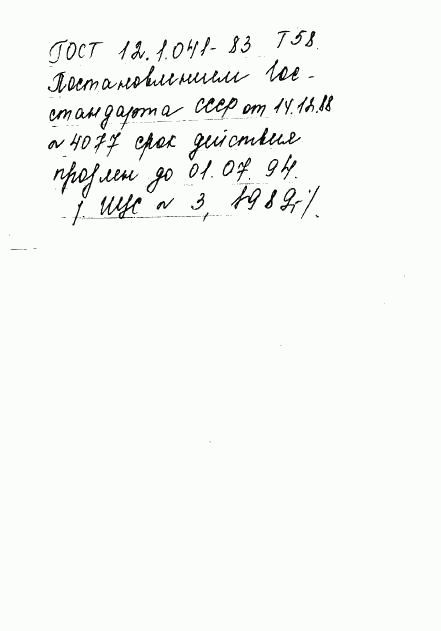 ГОСТ 12.1.041-83 Т58.
Постановлением Гос-
стандарта СССР от 14.12.88
№ 4077 срок действия
продлен до 01.07.94.
/ИУС № 3, 1989г./.